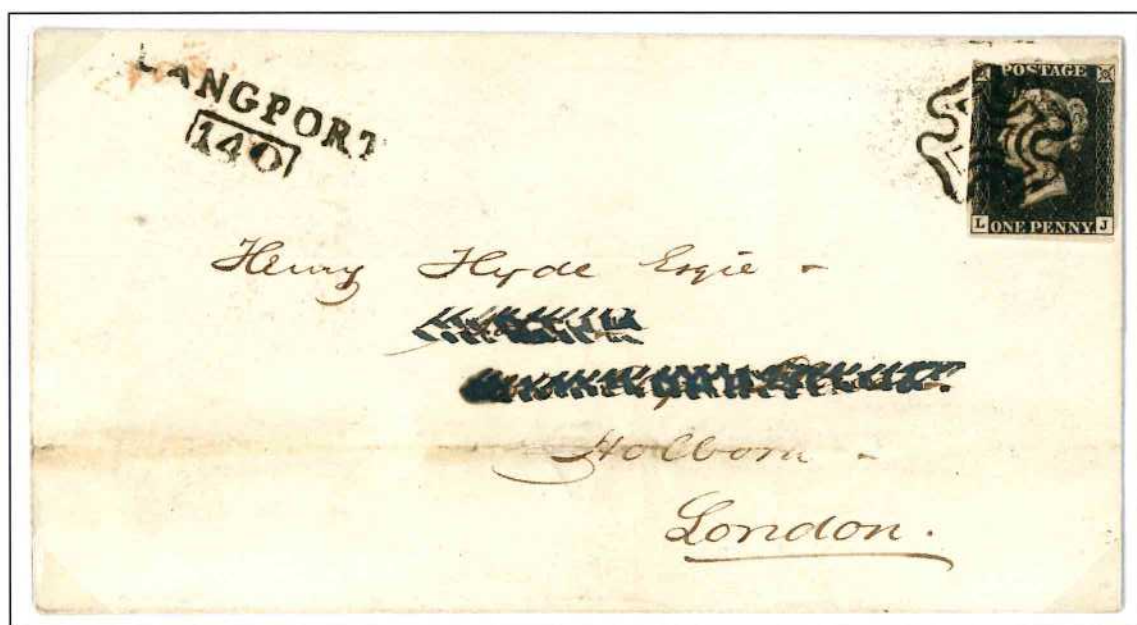 LANGPORT
140
POSTAGE
L ONE PENNY J
Henry Hyde Esqie -
Holborn -
London.